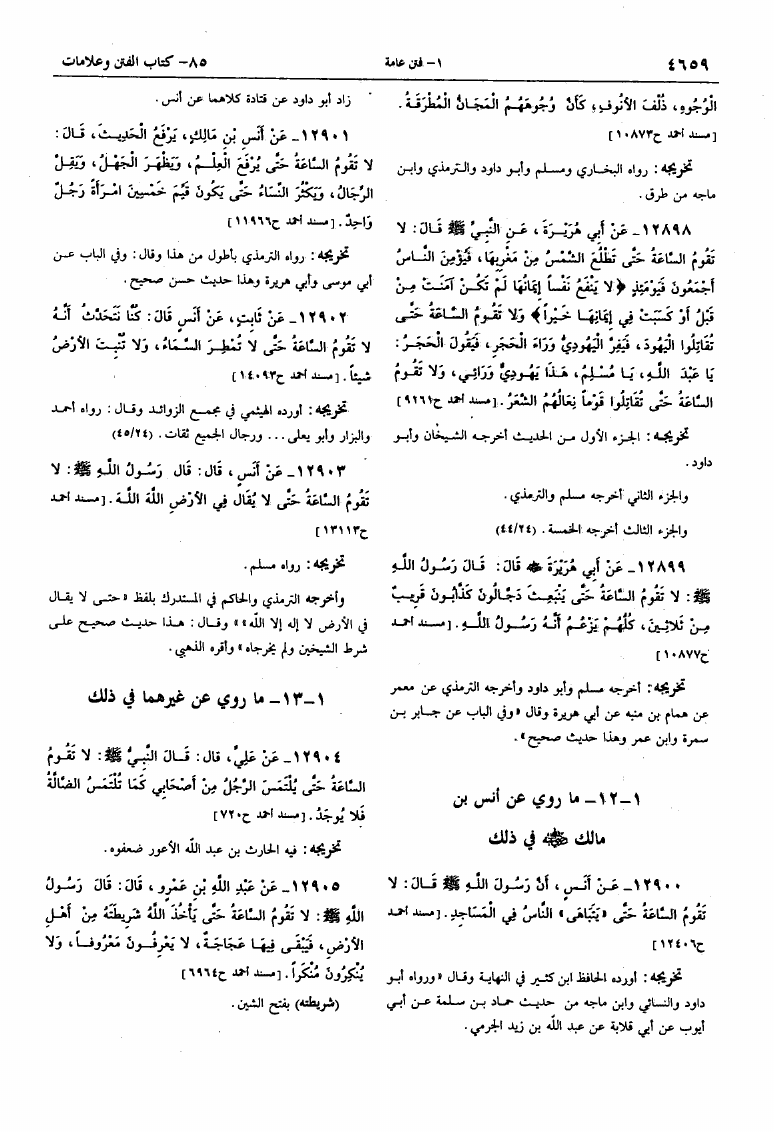 ٤٦٥٩
١- فتن عامة
٨٥- كتاب الفتن وعلامات
الْوُجُوهِ، ذُلْفَ الأُنُوفِ، كَأَنَّ وُجُوهَهُمُ الْمَجَانُّ الْمُطْرَقَةُ.
[مسند احمد ح١٠٨٧٣]
تخريجه: رواه البخاري ومسلم وأبو داود والترمذي وابن
ماجه من طرق.
١٢٨٩٨- عَنْ أَبِي هُرَيْرَةَ، عَنِ النَّبِيِّ ﷺ قَالَ: لا
تَقُومُ السَّاعَةُ حَتَّى تَطْلُعَ الشَّمْسُ مِنْ مَغْرِبِهَا، فَيُؤْمِنُ النَّاسُ
أَجْمَعُونَ فَيَوْمَئِذٍ ﴿لا يَنْفَعُ نَفْساً إِيمَانُهَا لَمْ تَكُنْ آمَنَتْ مِنْ
قَبْلُ أَوْ كَسَبَتْ فِي إِيمَانِهَا خَيْراً﴾ وَلا تَقُومُ السَّاعَةُ حَتَّى
تُقَاتِلُوا الْيَهُودَ، فَيَفِرُّ الْيَهُودِيُّ وَرَاءَ الْحَجَرِ، فَيَقُولَ الْحَجَرُ:
يَا عَبْدَ اللَّهِ، يَا مُسْلِمُ، هَذَا يَهُودِيٌّ وَرَائِي، وَلا تَقُومُ
السَّاعَةُ حَتَّى تُقَاتِلُوا قَوْماً نِعَالُهُمُ الشَّعَرُ. [مسند احمد ح٩٢٦١]
تخريجه: الجزء الأول من الحديث أخرجه الشيخان وأبو
داود.
والجزء الثاني أخرجه مسلم والترمذي.
والجزء الثالث أخرجه الخمسة. (٤٤/٢٤)
١٢٨٩٩- عَنْ أَبِي هُرَيْرَةَ ﷺ قَالَ: قَالَ رَسُولُ اللَّهِ
ﷺ: لا تَقُومُ السَّاعَةُ حَتَّى يَنْبَعِثَ دَجَّالُونَ كَذَّابُونَ قَرِيبٌ
مِنْ ثَلاثِينَ، كُلُّهُمْ يَزْعُمُ أَنَّهُ رَسُولُ اللَّهِ. [مسند احمد
ح١٠٨٧٧]
تخريجه: أخرجه مسلم وأبو داود وأخرجه الترمذي عن معمر
عن همام بن منبه عن أبي هريرة وقال «وفي الباب عن جابر بن
سمرة وابن عمر وهذا حديث صحيح».
١-١٢- ما روي عن أنس بن
مالك ﷺ في ذلك
١٢٩٠٠- عَنْ أَنَسٍ، أَنَّ رَسُولَ اللَّهِ ﷺ قَالَ: لا
تَقُومُ السَّاعَةُ حَتَّى «يَتَبَاهَى» النَّاسُ فِي الْمَسَاجِدِ. [مسند احمد
ح١٢٤٠٦]
تخريجه: أورده الحافظ ابن كثير في النهاية وقال «ورواه أبو
داود والنسائي وابن ماجه من حديث حماد بن سلمة عن أبي
أيوب عن أبي قلابة عن عبد الله بن زيد الجرمي.
زاد أبو داود عن قتادة كلاهما عن أنس.
١٢٩٠١- عَنْ أَنَسِ بْنِ مَالِكٍ، يَرْفَعُ الْحَدِيثَ، قَالَ:
لا تَقُومُ السَّاعَةُ حَتَّى يُرْفَعَ الْعِلْمُ، وَيَظْهَرَ الْجَهْلُ، وَيَقِلَّ
الرِّجَالُ، وَيَكْثُرَ النِّسَاءُ حَتَّى يَكُونَ قَيِّمَ خَمْسِينَ امْرَأَةً رَجُلٌ
وَاحِدٌ. [مسند احمد ح١١٩٦٦]
تخريجه: رواه الترمذي بأطول من هذا وقال: وفي الباب عن
أبي موسى وأبي هريرة وهذا حديث حسن صحيح.
١٢٩٠٢- عَنْ ثَابِتٍ، عَنْ أَنَسٍ قَالَ: كُنَّا نَتَحَدَّثُ أَنَّهُ
لا تَقُومُ السَّاعَةُ حَتَّى لا تُمْطِرَ السَّمَاءُ، وَلا تُنْبِتَ الأَرْضُ
شَيْئاً. [مسند احمد ح١٤٠٩٣]
تخريجه: أورده الهيثمي في مجمع الزوائد وقال: رواه أحمد
والبزار وأبو يعلى... ورجال الجميع ثقات. (٤٥/٢٤)
١٢٩٠٣- عَنْ أَنَسٍ، قَالَ: قَالَ رَسُولُ اللَّهِ ﷺ: لا
تَقُومُ السَّاعَةُ حَتَّى لا يُقَالَ فِي الأَرْضِ اللَّهُ اللَّهُ. [مسند احمد
ح١٣١١٣]
تخريجه: رواه مسلم.
وأخرجه الترمذي والحاكم في المستدرك بلفظ «حتى لا يقال
في الأرض لا إله إلا الله»» وقال: هذا حديث صحيح على
شرط الشيخين ولم يخرجاه» وأقره الذهبي.
١-١٣- ما روي عن غيرهما في ذلك
١٢٩٠٤- عَنْ عَلِيٍّ، قال: قَالَ النَّبِيُّ ﷺ: لا تَقُومُ
السَّاعَةُ حَتَّى يُلْتَمَسَ الرَّجُلُ مِنْ أَصْحَابِي كَمَا تُلْتَمَسُ الضَّالَّةُ
فَلا يُوجَدُ. [مسند احمد ح٧٢٠]
تخريجه: فيه الحارث بن عبد الله الأعور ضعفوه.
١٢٩٠٥- عَنْ عَبْدِ اللَّهِ بْنِ عَمْرٍو، قَالَ: قَالَ رَسُولُ
اللَّهِ ﷺ: لا تَقُومُ السَّاعَةُ حَتَّى يَأْخُذَ اللَّهُ شَرِيطَتَهُ مِنْ أَهْلِ
الأَرْضِ، فَيَبْقَى فِيهَا عَجَاجَةٌ، لا يَعْرِفُونَ مَعْرُوفاً، وَلا
يُنْكِرُونَ مُنْكَراً. [مسند احمد ح٦٩٦٤]
(شريطته) بفتح الشين.